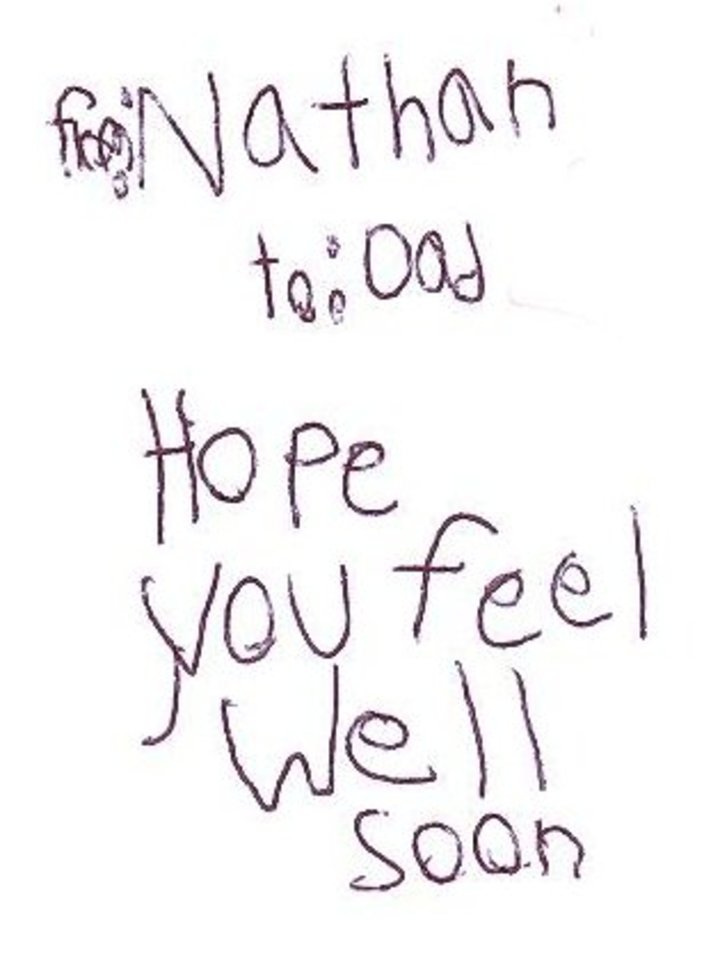 from: Nathan
to: Dad
Hope
you feel
Well
soon